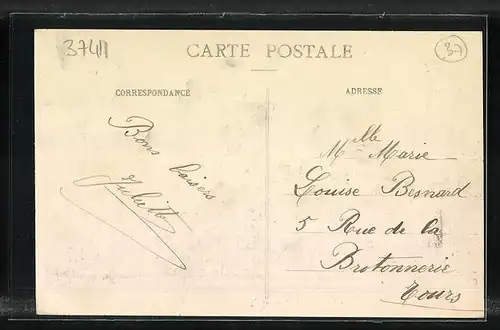 37411
CARTE POSTALE
37
CORRESPONDANCE
ADRESSE
Bons baisers
Mlle Marie
Louise Besnard
5 Rue de la
Brotonnerie
Tours